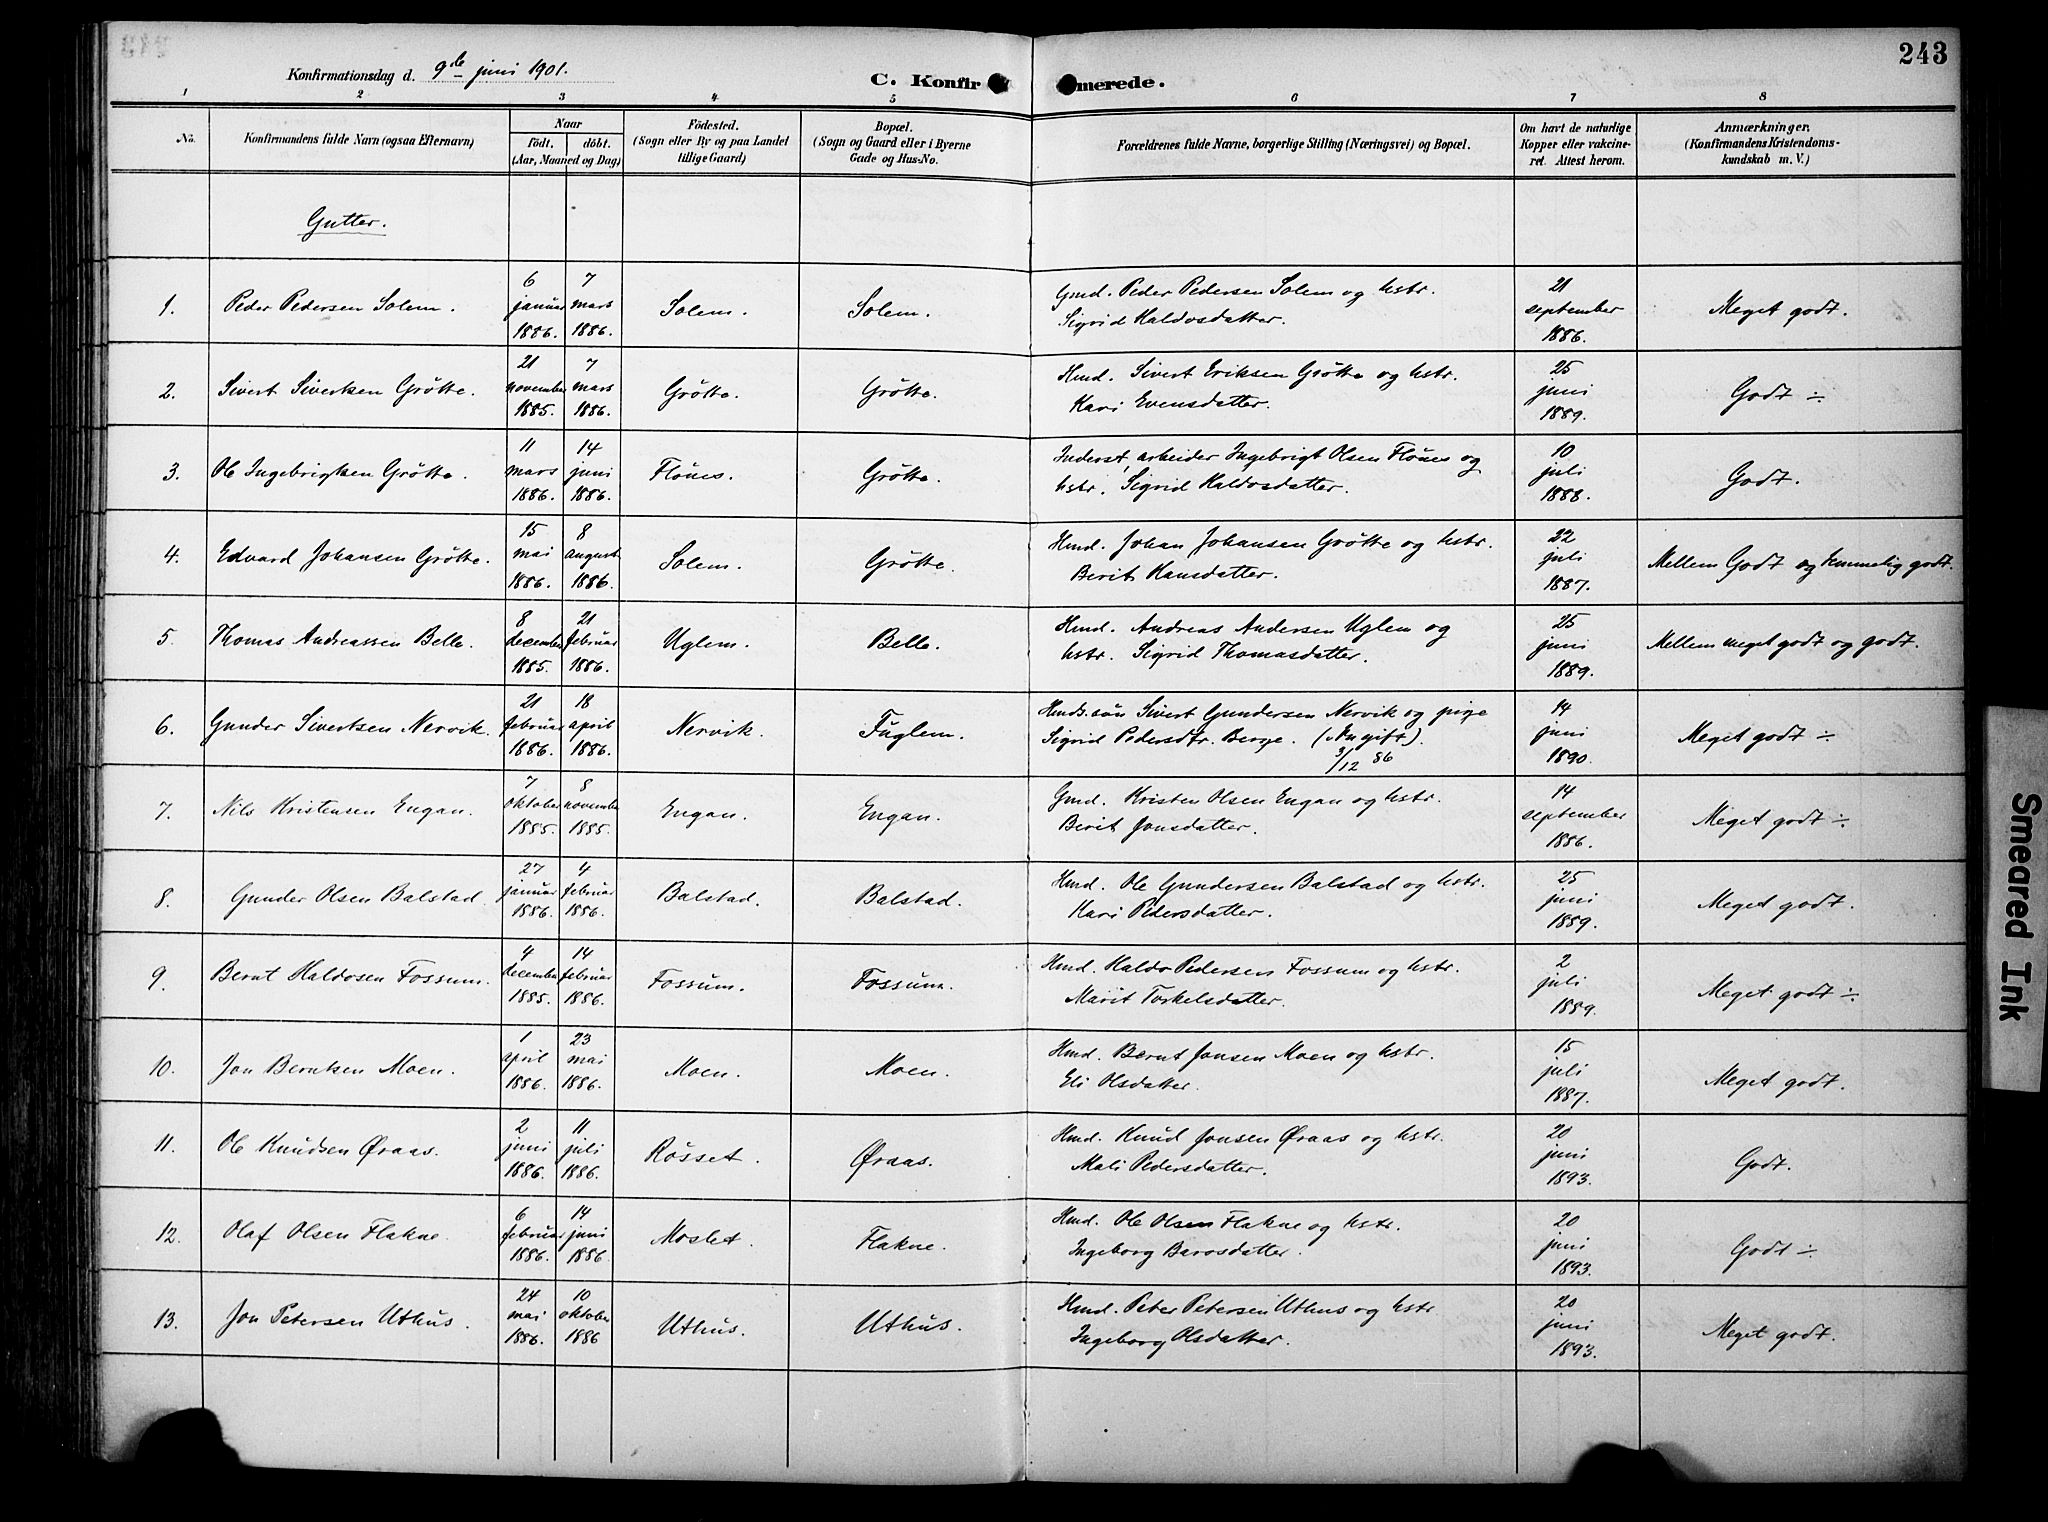 243
Konfirmationsdag d. 9de juni 1901.
C. Konfirmerede.
1 2 3 4 5 6 7 8
No.
Konfirmandens fulde Navn (ogsaa Efternavn)
Naar
födt. döbt.
(Aar, Maaned og Dag)
Födested.
(Sogn eller By og paa Landet
tillige Gaard)
Bopæl.
(Sogn og Gaard eller i Byerne
Gade og Hus-No.
Forældrenes fulde Navne, borgerlige Stilling (Næringsvei) og Bopæl.
Om havt de naturlige
Kopper eller vakcine-
ret. Attest herom.
Anmærkninger.
(Konfirmandens Kristendoms-
kundskab m. V.)
Gutter.
1. Peder Pedersen Solem. 6 januar 1886. 7 mars 1886. Solem. Solem. Gmd. Peder Pedersen Solem og hstr.
Sigrid Haldosdatter. 21 september 1886. Meget godt.
2. Sivert Sivertsen Grötte. 21 november 1885. 7 mars 1886. Grötte. Grötte. Hmd. Sivert Eriksen Grötte og hstr.
Kari Evensdatter. 25 juni 1889. Godt ÷
3. Ole Ingebrigtsen Grötte. 11 mars 1886. 14 juni 1886. Flönes. Grötte. Inderst, arbeider Ingebrigt Olsen Flönes og
hstr. Sigrid Haldosdatter. 10 juli 1888. Godt.
4. Edvard Johansen Grötte. 15 mai 1886. 8 august 1886. Solem. Grötte. Hmd. Johan Johansen Grötte og hstr.
Berit Hansdatter. 22 juli 1887. Mellem Godt og temmelig godt.
5. Thomas Andreassen Belle. 8 december 1885. 21 februar 1886. Uglem. Belle. Hmd. Andreas Andersen Uglem og
hstr. Sigrid Thomasdatter. 25 juni 1889. Mellem meget godt og godt.
6. Gunder Sivertsen Nervik. 21 februar 1886. 18 april 1886. Nervik. Fuglem. Hmds.sön Sivert Gundersen Nervik og pige
Sigrid Pedersdtr. Berge. (Nu gift).
3/12 86 14 juni 1890. Meget godt ÷
7. Nils Kristensen Engan. 7 oktober 1885. 8 november 1885. Engan. Engan. Gmd. Kristen Olsen Engan og hstr.
Berit Jonsdatter. 14 september 1886. Meget godt ÷
8. Gunder Olsen Balstad. 27 januar 1886. 4 februar 1886. Balstad. Balstad. Hmd. Ole Gundersen Balstad og hstr.
Kari Pedersdatter. 25 juni 1889. Meget godt.
9. Bernt Haldosen Fossum. 4 december 1885. 14 februar 1886. Fossum. Fossum. Hmd. Haldo Pedersen Fossum og hstr.
Marit Torkelsdatter. 2 juli 1889. Meget godt ÷
10. Jon Berntsen Moen. 1 april 1886. 23 mai 1886. Moen. Moen. Hmd. Bernt Jonsen Moen og hstr.
Eli Olsdatter. 15 juli 1887. Meget godt.
11. Ole Knudsen Øraas. 2 juni 1886. 11 juli 1886. Rösset. Øraas. Hmd. Knud Jonsen Øraas og hstr.
Mali Pedersdatter. 20 juni 1893. Godt.
12. Olaf Olsen Flakne. 6 februar 1886. 14 juni 1886. Moslet. Flakne. Hmd. Ole Olsen Flakne og hstr.
Ingeborg Barosdatter. 20 juni 1893. Godt ÷
13. Jon Petersen Uthus. 24 mai 1886. 10 oktober 1886 Uthus. Uthus. Hmd. Peter Petersen Uthus og hstr
Ingeborg Olsdatter. 20 juni 1893. Meget godt.
Smeared Ink